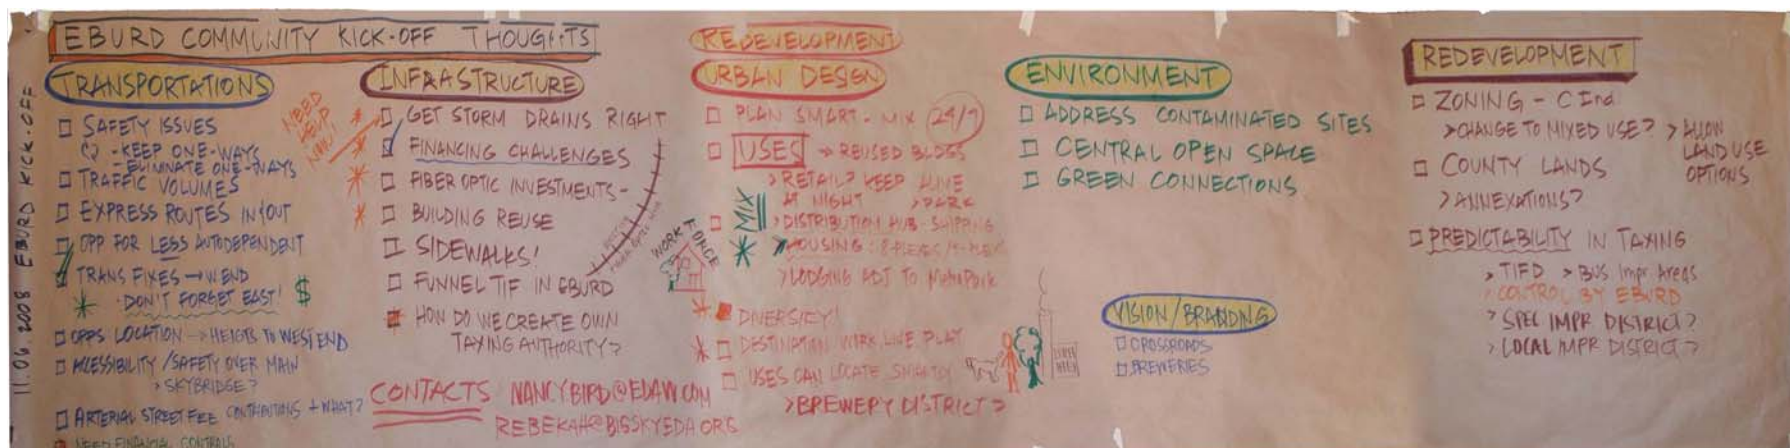 11.06.2008 EBURD KICK-OFF
EBURD COMMUNITY KICK-OFF THOUGHTS
TRANSPORTATIONS
SAFETY ISSUES
- KEEP ONE-WAYS
- ELIMINATE ONE-WAYS
TRAFFIC VOLUMES
EXPRESS ROUTES IN/OUT
OPP FOR LESS AUTODEPENDENT
TRANS FIXES → W.END
DON'T FORGET EAST! $
OPPS LOCATION → HEIGTS TO WEST END
ACCESSIBILITY / SAFETY OVER MAIN
> SKYBRIDGE?
ARTERIAL STREET FEE CONTRIBUTIONS + WHAT?
NEED FINANCIAL CONTROLS
INFRASTRUCTURE
NEED
HELP
NOW!
GET STORM DRAINS RIGHT
FINANCING CHALLENGES
FIBER OPTIC INVESTMENTS -
BUILDING REUSE
SIDEWALKS!
FUNNEL TIF IN EBURD
HOW DO WE CREATE OWN
TAXING AUTHORITY?
CONTACTS NANCY.BIRD@EDAW.COM
REBEKAH@BIGSKYEDA.ORG
REDEVELOPMENT
URBAN DESIGN
PLAN SMART - MIX 24/7
USES → REUSED BLDGS
> RETAIL? KEEP ALIVE
AT NIGHT > PARK
MIX
> DISTRIBUTION HUB - SHIPPING
> HOUSING: 8-PLEXES /
> LODGING ADJ TO MetraPark
WORK FORCE
DIVERSIFY!
DESTINATION WORK LIVE PLAY
USES CAN LOCATE
> BREWERY DISTRICT >
ENVIRONMENT
ADDRESS CONTAMINATED SITES
CENTRAL OPEN SPACE
GREEN CONNECTIONS
VISION/BRANDING
CROSSROADS
BREWERIES
REDEVELOPMENT
ZONING - C Ind
> CHANGE TO MIXED USE? > ALLOW
LAND USE
OPTIONS
COUNTY LANDS
> ANNEXATIONS?
PREDICTABILITY IN TAXING
> TIFD > BUS Impr Areas
> CONTROL BY EBURD
> SPEC IMPR DISTRICT?
> LOCAL IMPR DISTRICT?